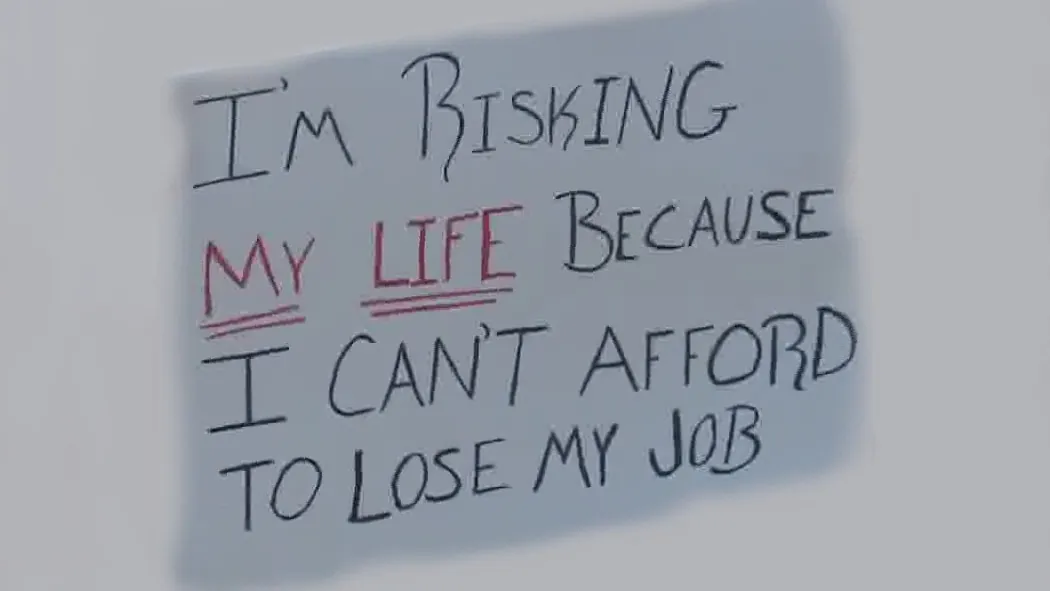 I'M RISKING
MY LIFE BECAUSE
I CAN'T AFFORD
TO LOSE MY JOB